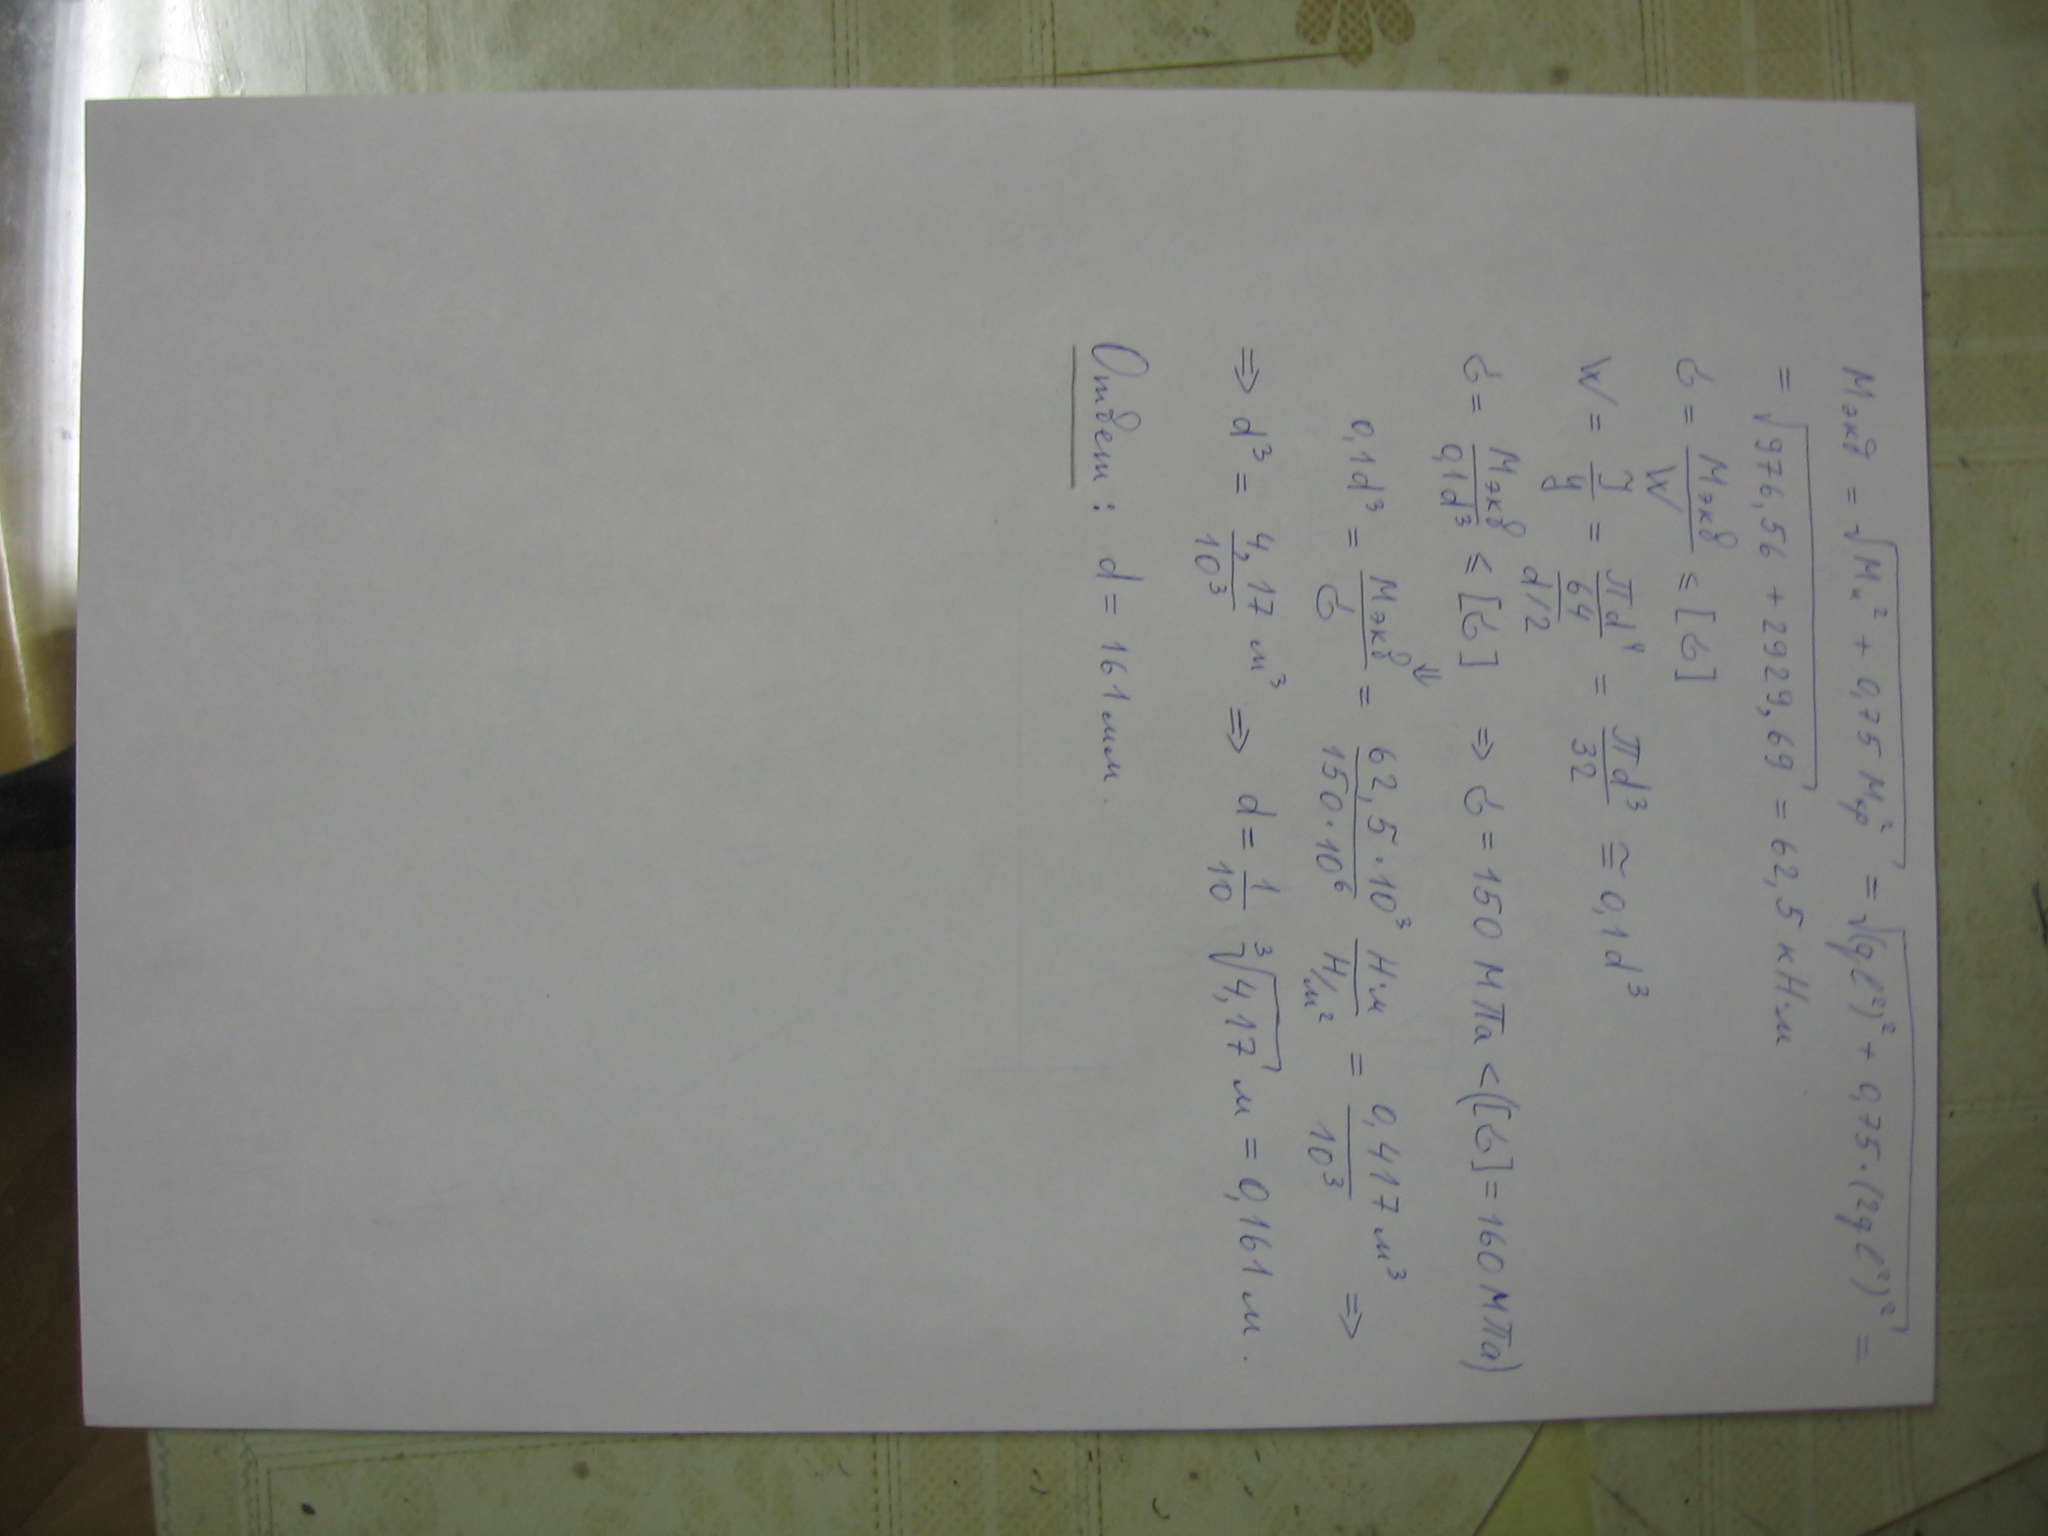 Mэкв = √(Mи² + 0,75 Mкр²) = √((ql²)² + 0,75·(2ql²)²) =
= √(976,56 + 2929,69) = 62,5 кН·м
σ = Mэкв/W ≤ [σ]
W = J/y = (πd⁴/64)/(d/2) = πd³/32 ≅ 0,1d³
σ = Mэкв/0,1d³ ≤ [σ] ⇒ σ = 150 МПа < ([σ] = 160 МПа)
⇓
0,1d³ = Mэкв/σ = 62,5·10³/150·10⁶ Н·м/Н/м² = 0,417/10³ м³ ⇒
⇒ d³ = 4,17/10³ м³ ⇒ d = 1/10 ³√4,17 м = 0,161 м.
Ответ: d = 161 мм.